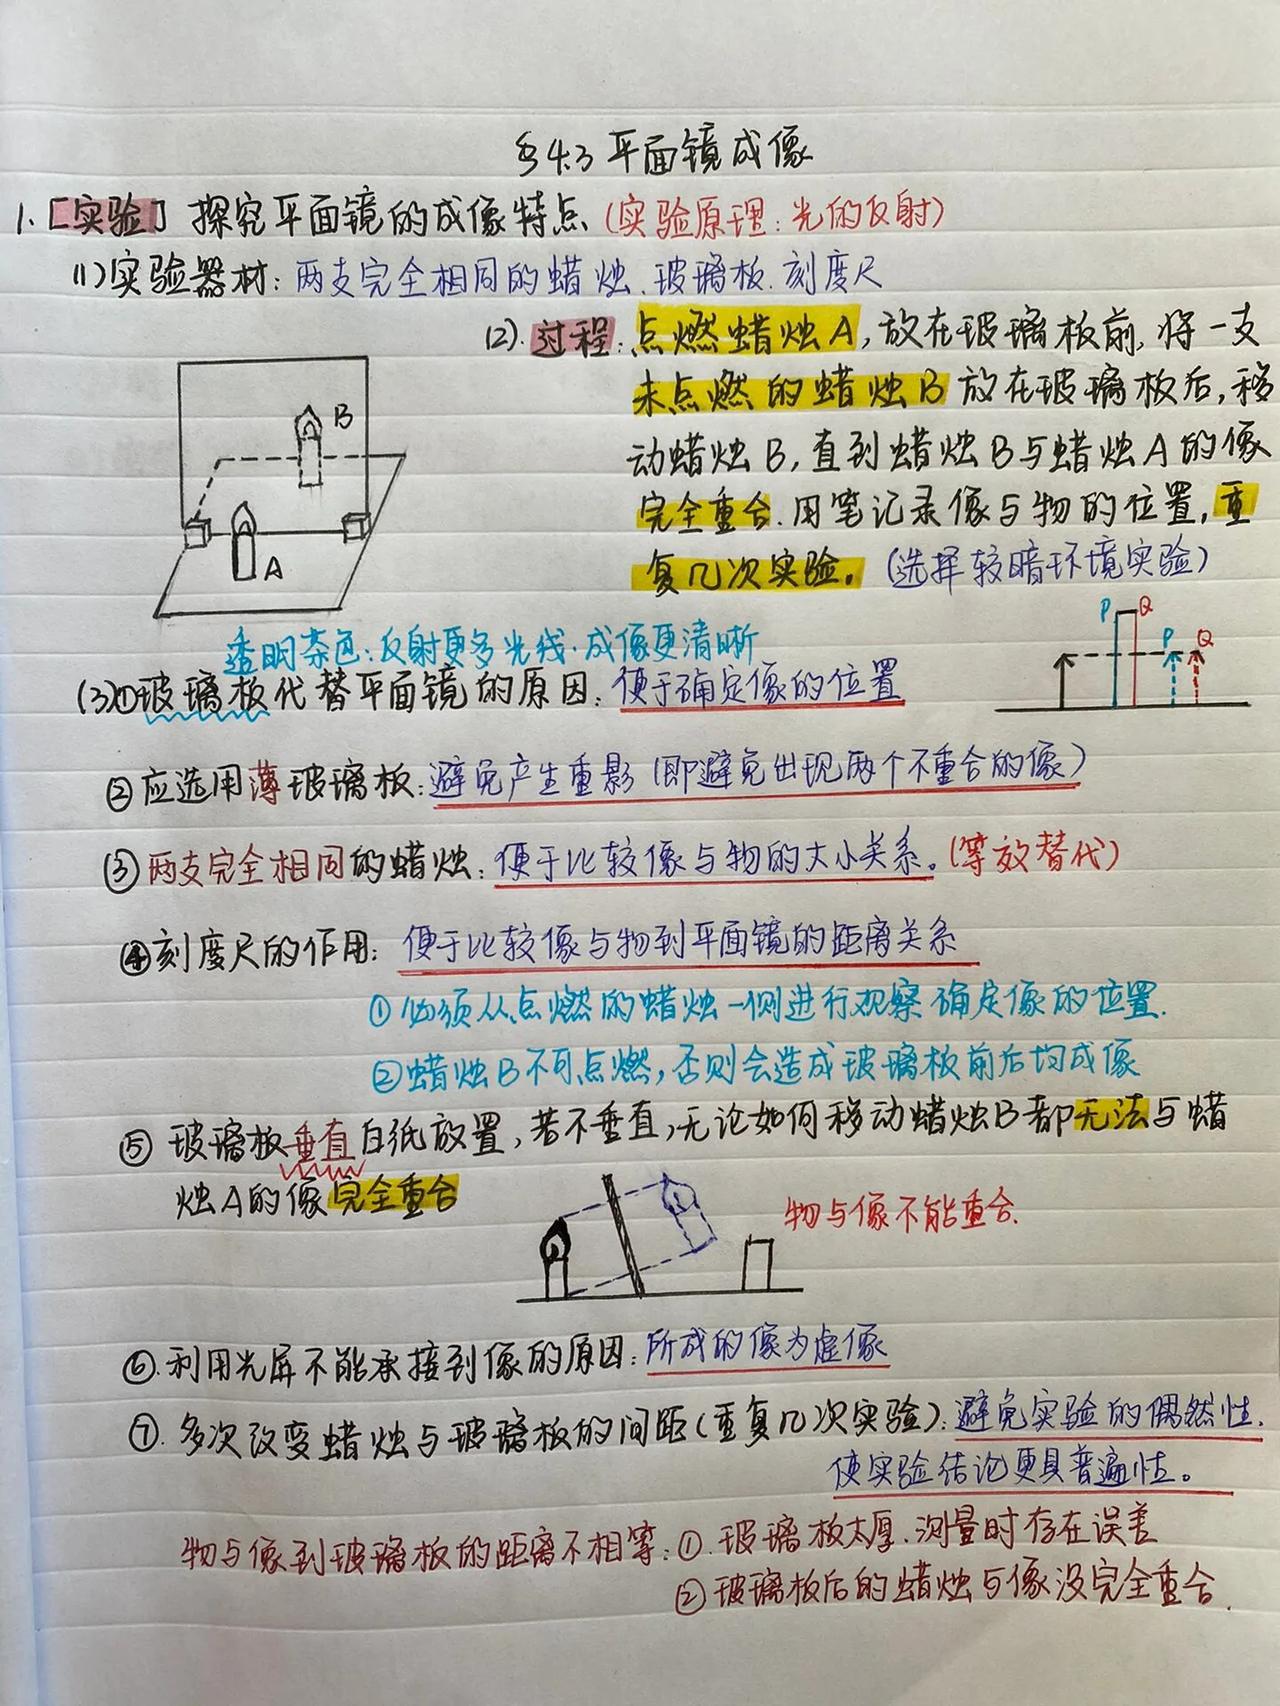 §4.3 平面镜成像
1.［实验］探究平面镜的成像特点（实验原理：光的反射）
(1)实验器材：两支完全相同的蜡烛、玻璃板、刻度尺
(2).过程：点燃蜡烛A，放在玻璃板前，将一支
未点燃的蜡烛B放在玻璃板后，移
动蜡烛B，直到蜡烛B与蜡烛A的像
完全重合.用笔记录像与物的位置，重
复几次实验。（选择较暗环境实验）
B
A
P Q
P Q
透明茶色：反射更多光线.成像更清晰
(3)①玻璃板代替平面镜的原因：便于确定像的位置
②应选用薄玻璃板：避免产生重影（即避免出现两个不重合的像）
③两支完全相同的蜡烛：便于比较像与物的大小关系。（等效替代）
④刻度尺的作用：便于比较像与物到平面镜的距离关系
①必须从点燃的蜡烛一侧进行观察确定像的位置.
②蜡烛B不可点燃，否则会造成玻璃板前后均成像
⑤玻璃板垂直白纸放置，若不垂直，无论如何移动蜡烛B都无法与蜡
烛A的像完全重合
物与像不能重合.
⑥.利用光屏不能承接到像的原因：所成的像为虚像
⑦.多次改变蜡烛与玻璃板的间距（重复几次实验）：避免实验的偶然性.
使实验结论更具普遍性。
物与像到玻璃板的距离不相等：①.玻璃板太厚.测量时存在误差
②玻璃板后的蜡烛与像没完全重合.